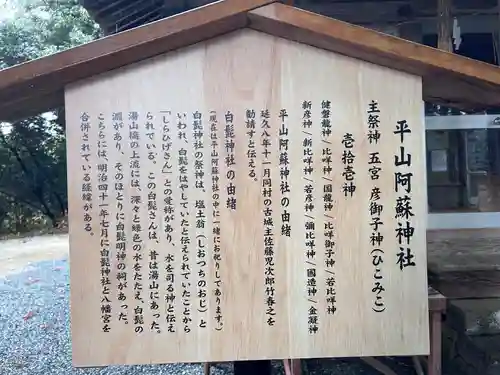 平山阿蘇神社
主祭神 五宮 彦御子神（ひこみこ）
壱拾壱神
健磐龍神/比咩神/国龍神/比咩御子神/若比咩神
新彦神/新比咩神/若彦神/彌比咩神/國造神/金凝神
平山阿蘇神社の由緒
延久八年十一月同村の古城主佐藤児次郎竹春之を
勧請すと伝える。
白髭神社の由緒
（現在は平山阿蘇神社の中に一緒にお祀りしてあります。）
白髭神社の祭神は、塩土翁（しおつちのおじ）と
いわれ、白髭をはやしていたと伝えられていたことから
「しらひげさん」との愛称があり、水を司る神と伝え
られている。この白髭さんは、昔は湯山にあった。
湯山橋の上流には、深々と緑色の水をたたえ、白髭の
淵があり、そのほとりに白髭明神の祠があった。
こちらには、明治四十一年七月に白髭神社と八幡宮を
合併されている経緯がある。